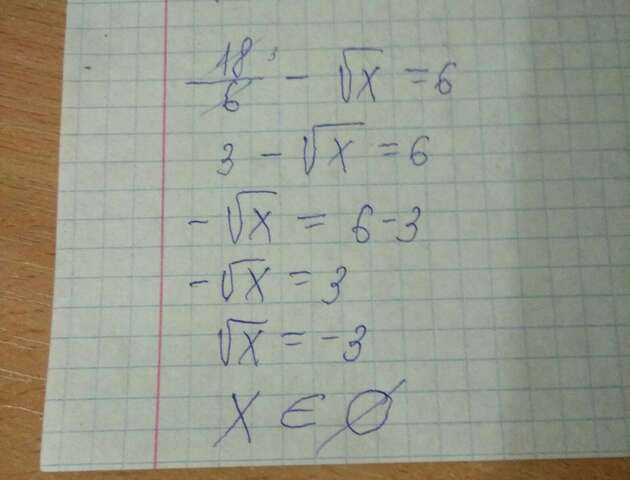 18/6 3 - √x = 6
3 - √x = 6
-√x = 6-3
-√x = 3
√x = -3
x ∈ ∅